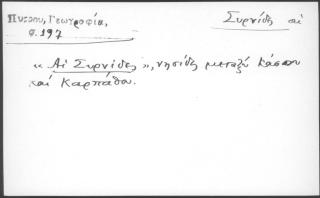 Πυρρου, Γεωγραφία,
σ. 197
Συρνίδες αἱ
« Αἱ Συρνίδες », νησίδες μεταξὺ Κάσου
καὶ Καρπάθου.